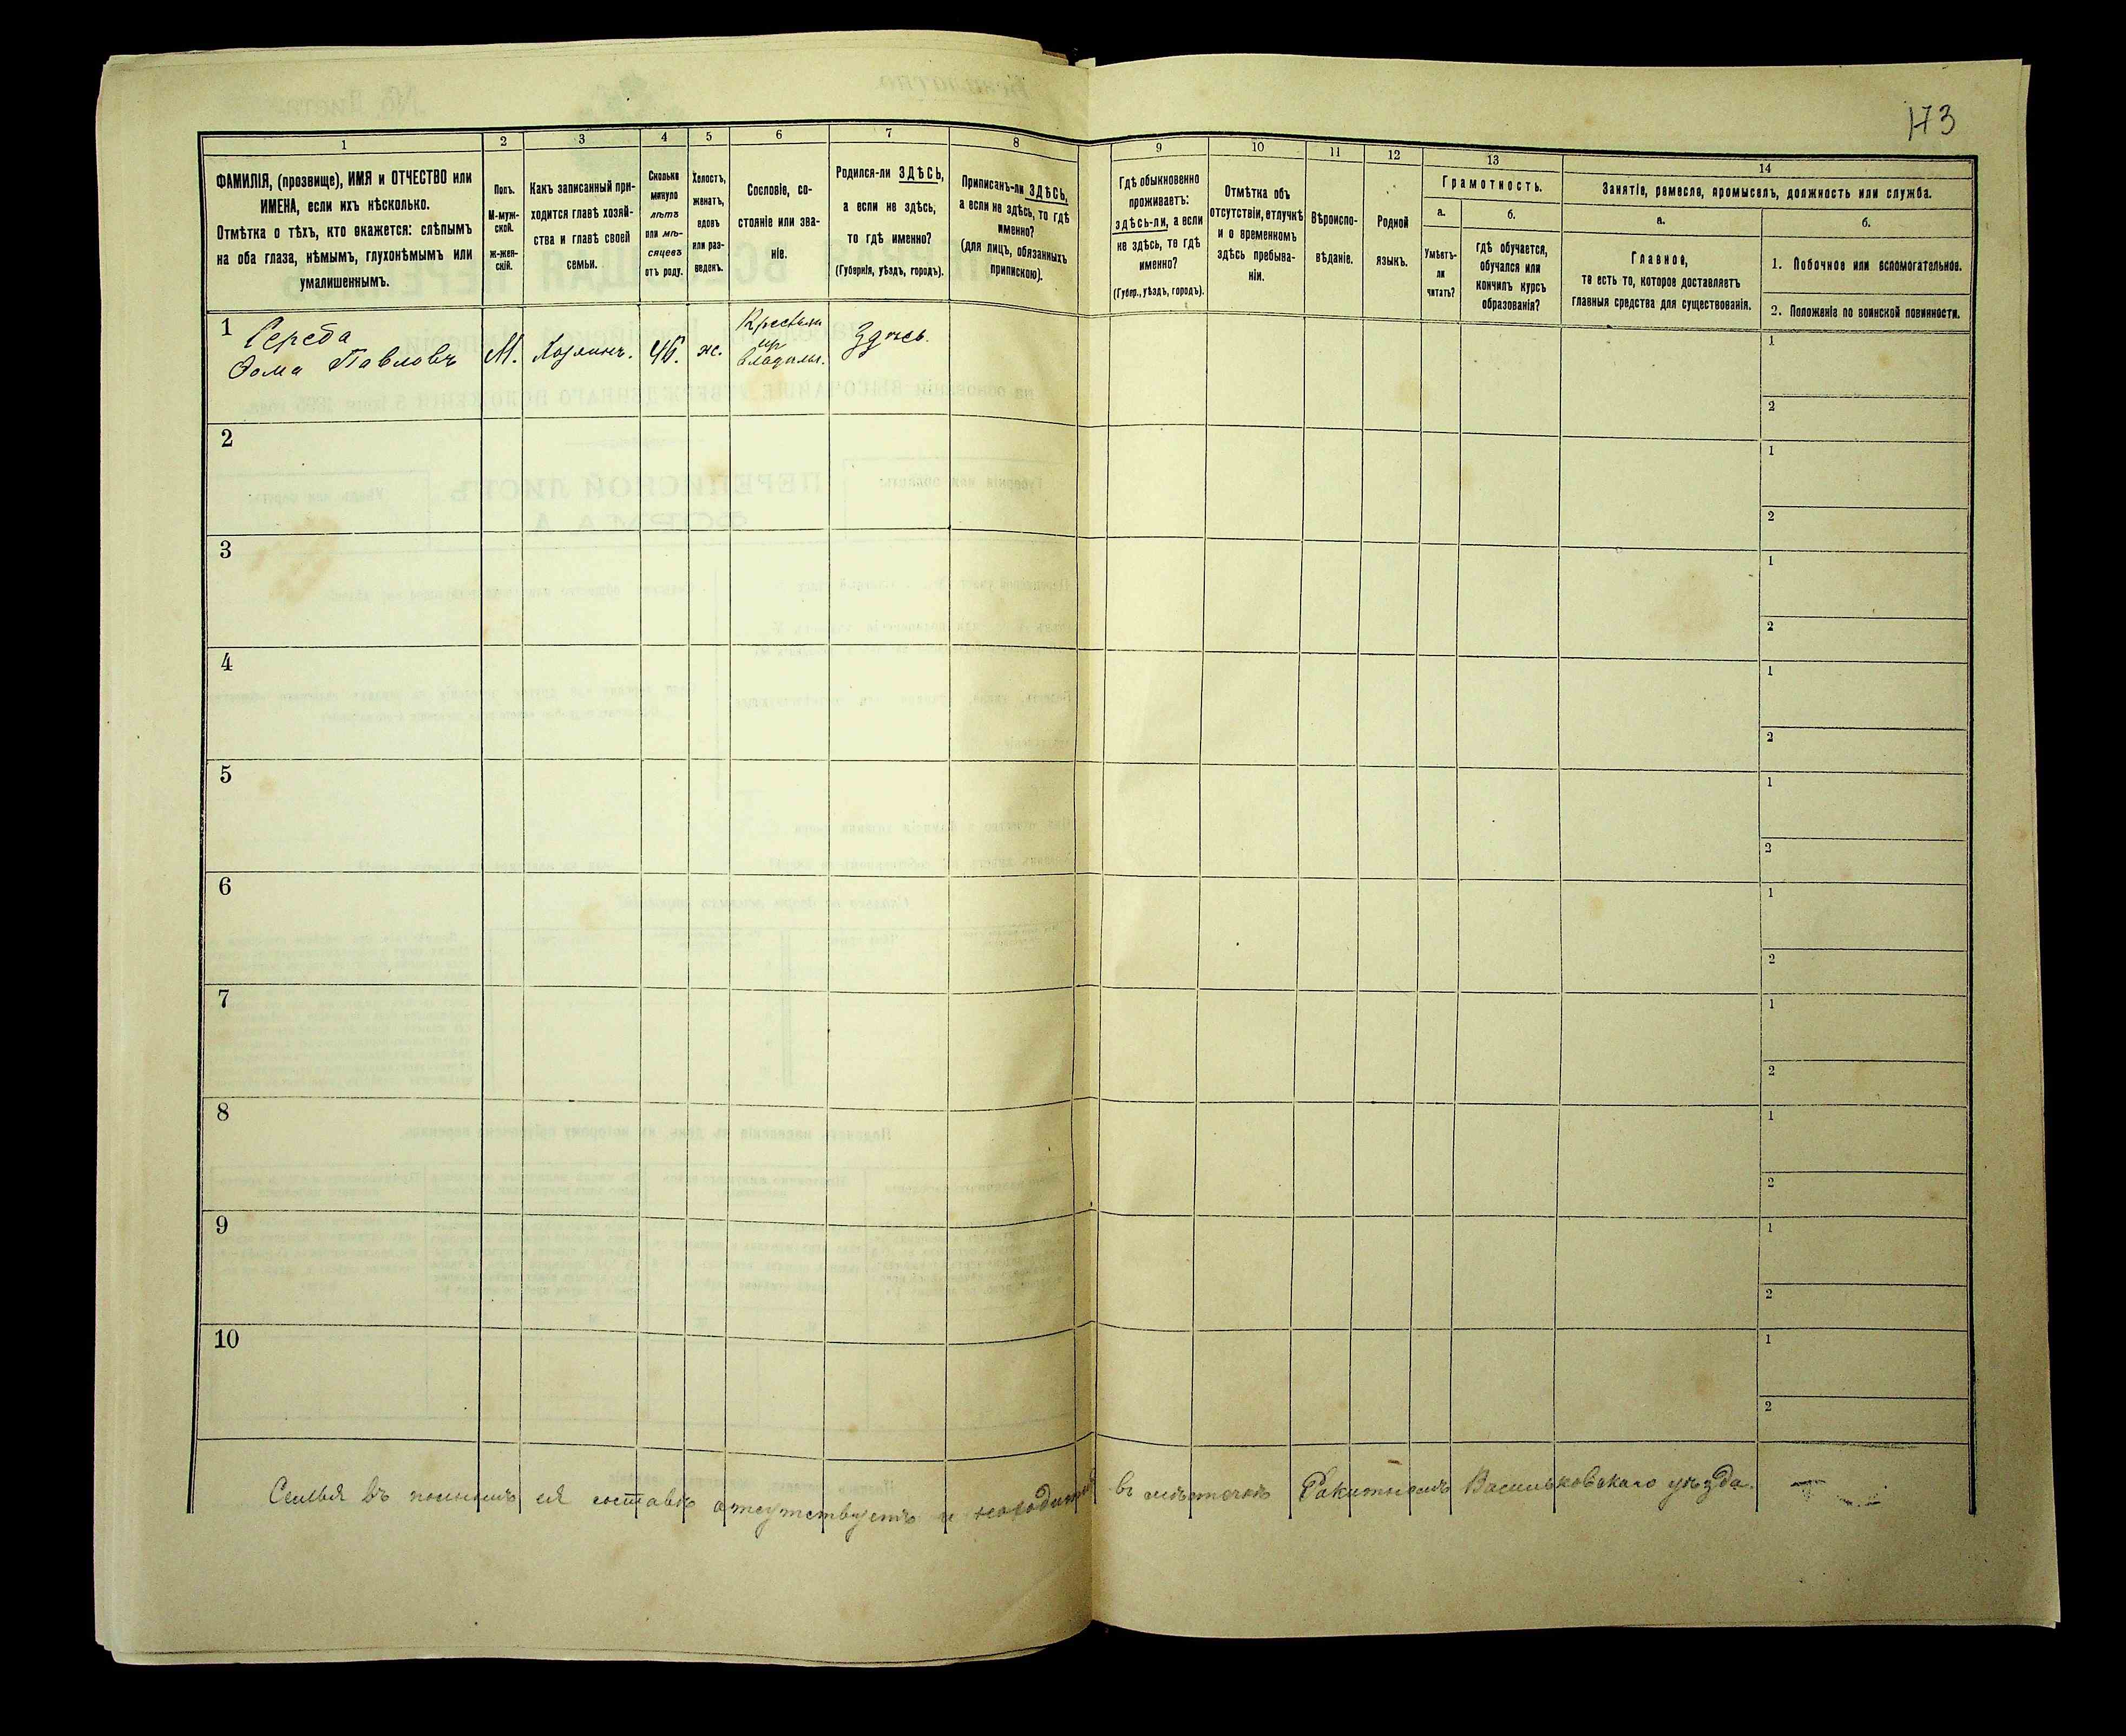 173
1
2
3
4
5
6
7
8
9
10
11
12
13
14
ФАМИЛІЯ, (прозвище), ИМЯ и ОТЧЕСТВО или
ИМЕНА, если ихъ нѣсколько.
Отмѣтка о тѣхъ, кто окажется: слѣпымъ
на оба глаза, нѣмымъ, глухонѣмымъ или
умалишеннымъ.
Полъ.
М-муж-
ской.
ж-жен-
скій.
Какъ записанный при-
ходится главѣ хозяй-
ства и главѣ своей
семьи.
Сколько
минуло
лѣтъ
или мѣ-
сяцевъ
отъ роду.
Холостъ,
женатъ,
вдовъ
или раз-
веденъ.
Сословіе, со-
стояніе или зва-
ніе.
Родился-ли ЗДѢСЬ,
а если не здѣсь,
то гдѣ именно?
(Губернія, уѣздъ, городъ).
Приписанъ-ли ЗДѢСЬ,
а если не здѣсь, то гдѣ
именно?
(для лицъ, обязанныхъ
припискою).
Гдѣ обыкновенно
проживаетъ:
здѣсь-ли, а если
не здѣсь, то гдѣ
именно?
(Губер., уѣздъ, городъ).
Отмѣтка объ
отсутствіи, отлучкѣ
и о временномъ
здѣсь пребыва-
ніи.
Вѣроиспо-
вѣданіе.
Родной
языкъ.
Грамотность.
а.
Умѣетъ-
ли
читать?
б.
гдѣ обучается,
обучался или
кончилъ курсъ
образованія?
Занятіе, ремесло, промыселъ, должность или служба.
а.
Главное,
то есть то, которое доставляетъ
главныя средства для существованія.
б.
1. Побочное или вспомогательное.
2. Положеніе по воинской повинности.
1
Середа
Фома Павловъ
М.
Хозяинъ.
46.
ж.
Крестьян
Здѣсь.
1
2
2
1
2
3
1
2
4
1
2
5
1
2
6
1
2
7
1
2
8
1
2
9
1
2
10
1
2
Семья въ полномъ ея составѣ отсутствуетъ и находится въ мѣстечкѣ Ракитномъ Васильковскаго уѣзда.